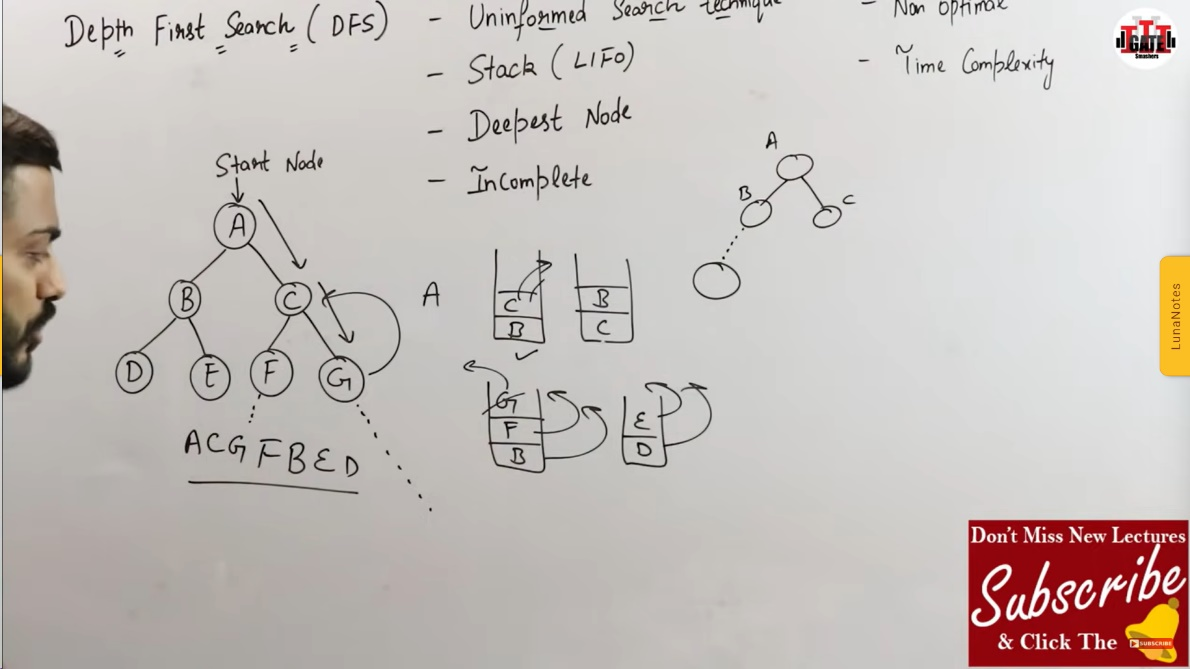 Depth First Search (DFS)
- Uninformed Search technique
- Stack (LIFO)
- Deepest Node
- Incomplete
- Non optimal
- Time Complexity
GATE
Smashers
Start Node
A
B
C
D
E
F
G
ACGFBED
A
C
B
B
C
G
F
B
E
D
A
B
C
LunaNotes
Don't Miss New Lectures
Subscribe
& Click The
SUBSCRIBE